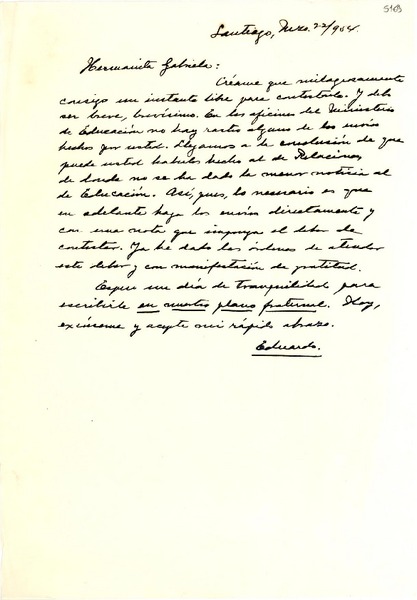 5163
Santiago, Nvre. 22/954.
Hermanita Gabriela:
Créame que milagrosamente
consigo un instante libre para contestarle. Y debo
ser breve, brevísimo. En las oficinas del Ministerio
de Educación no hay rastro alguno de los envíos
hechos por usted. Llegamos a la conclusión de que
puede usted haberlos hecho al de Relaciones,
de donde no se ha dado la menor noticia al
de Educación. Así, pues, lo necesario es que
en adelante haga los envíos directamente y
con una nota que imponga el deber de
contestar. Ya he dado las órdenes de atender
este deber y con manifestación de gratitud.
Espero un día de tranquilidad para
escribirle en nuestro plano fraternal. Hoy,
excúseme y acepte mi rápido abrazo.
Eduardo.